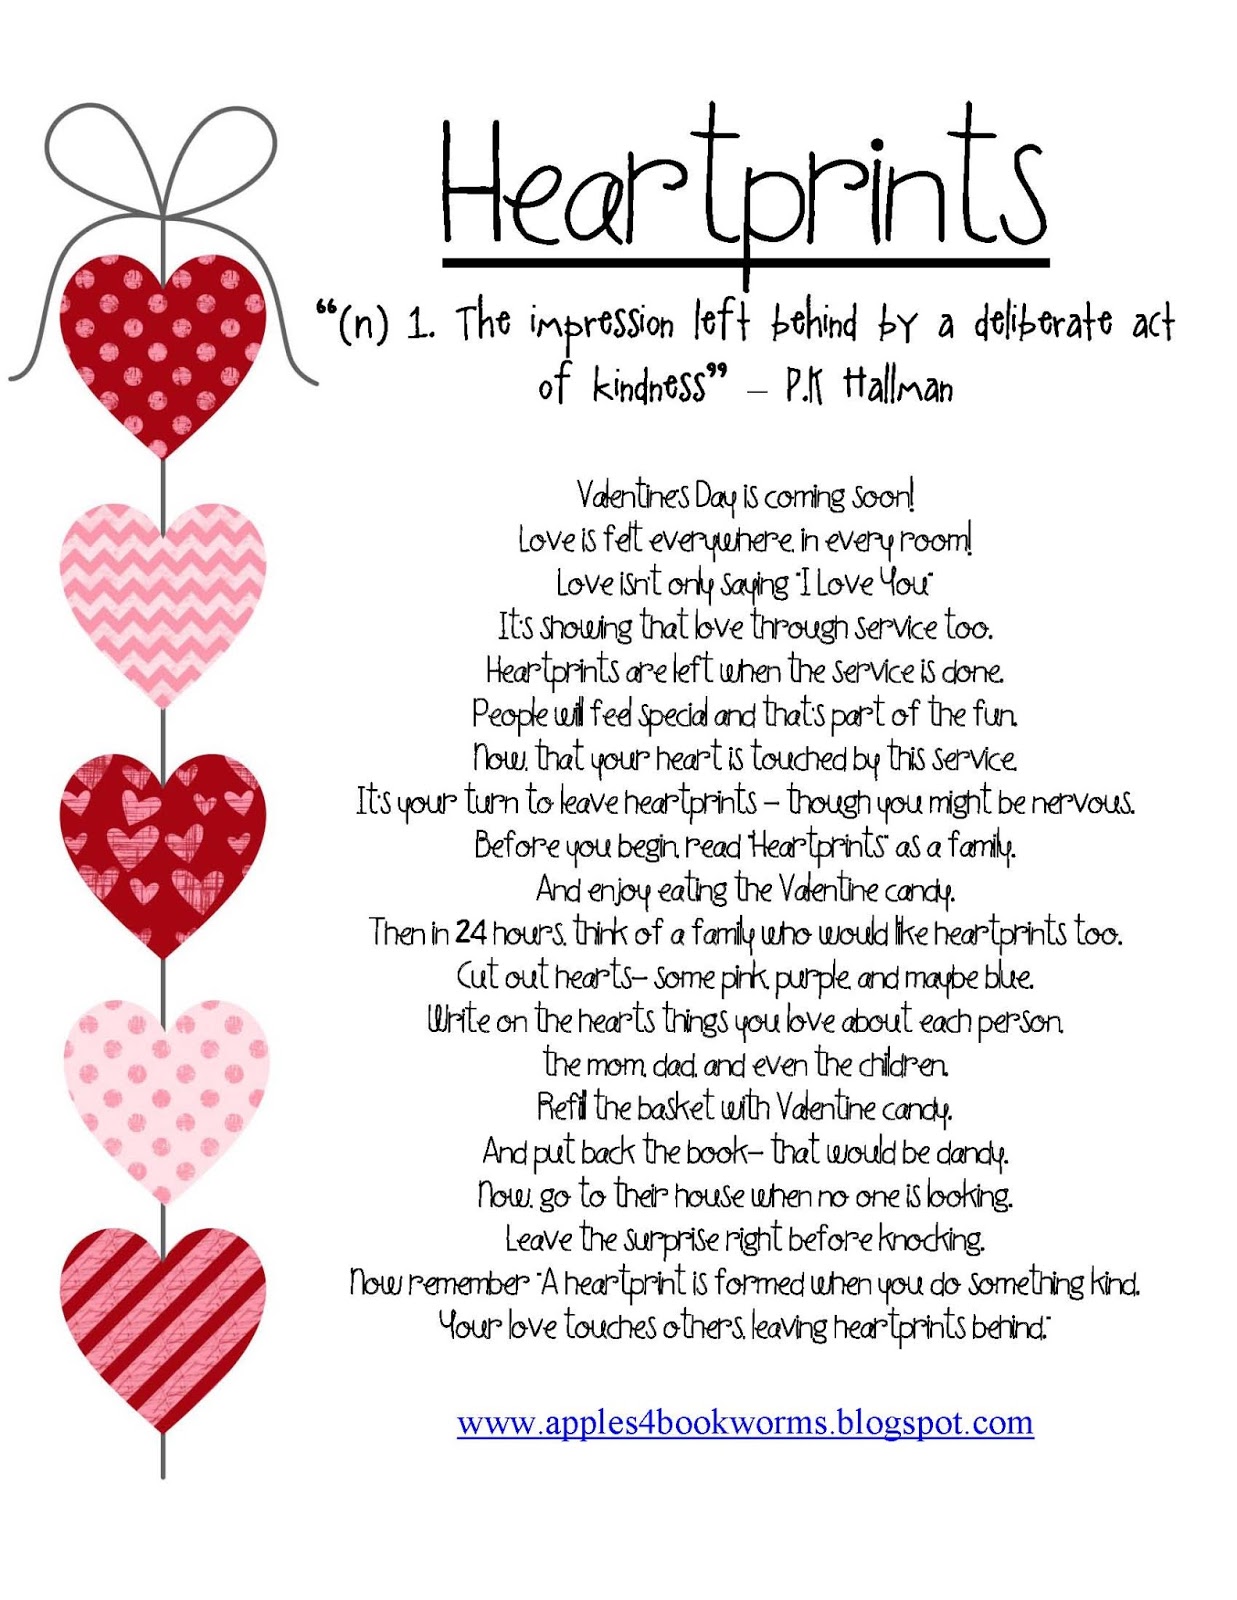 Heartprints
“(n) 1. The impression left behind by a deliberate act
of kindness” – P.K Hallman
Valentine's Day is coming soon!
Love is felt everywhere, in every room!
Love isn't only saying "I Love You"
It's showing that love through service too.
Heartprints are left when the service is done.
People will feel special and that's part of the fun.
Now, that your heart is touched by this service,
It's your turn to leave heartprints – though you might be nervous.
Before you begin, read "Heartprints" as a family.
And enjoy eating the Valentine candy.
Then in 24 hours, think of a family who would like heartprints too.
Cut out hearts– some pink, purple, and maybe blue.
Write on the hearts things you love about each person,
the mom, dad, and even the children.
Refill the basket with Valentine candy.
And put back the book– that would be dandy.
Now, go to their house when no one is looking.
Leave the surprise right before knocking.
Now remember "A heartprint is formed when you do something kind.
Your love touches others, leaving heartprints behind."
www.apples4bookworms.blogspot.com